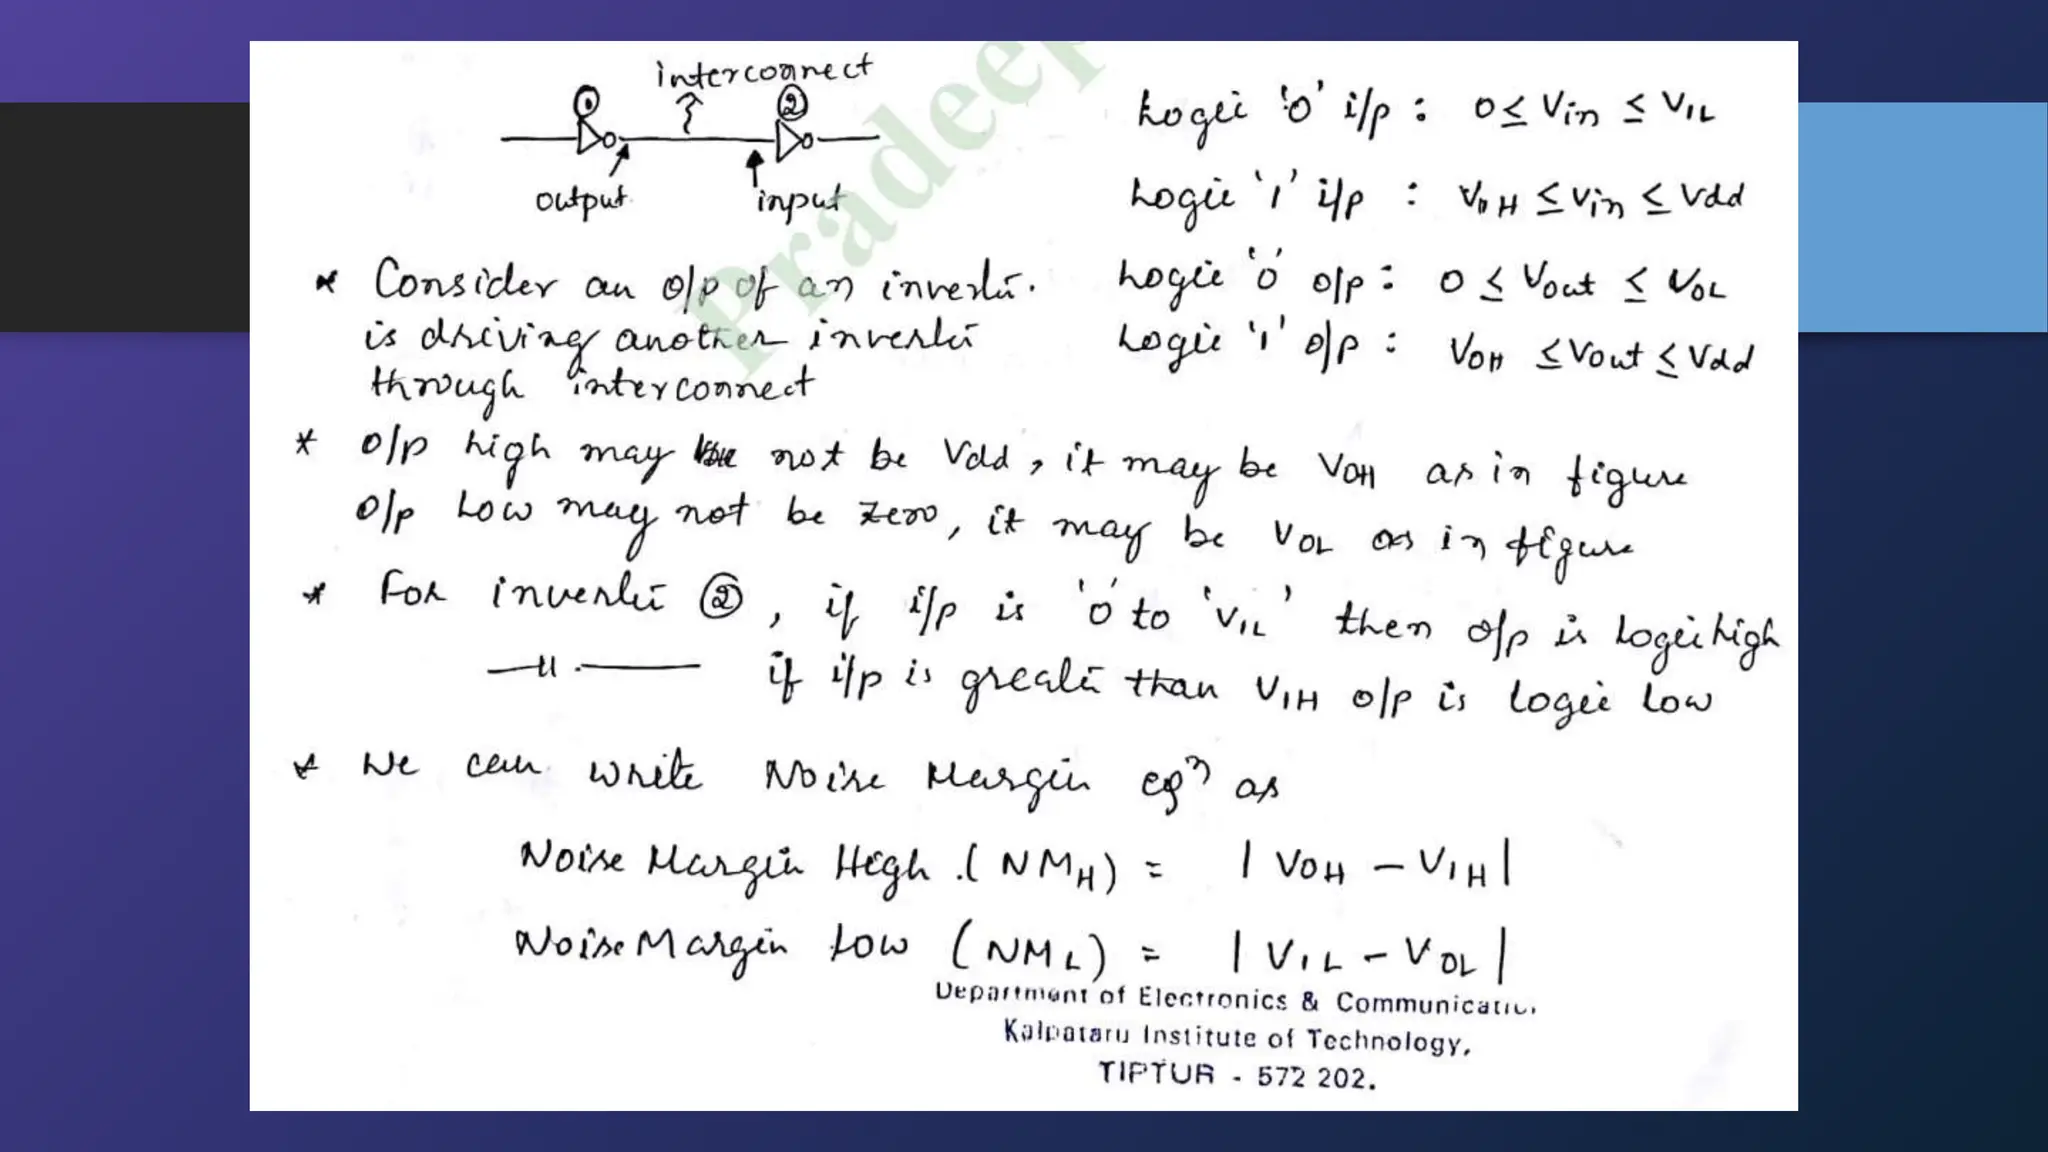 interconnect
① ②
output input
Logic '0' i/p : 0 ≤ Vin ≤ VIL
Logic '1' i/p : VIH ≤ Vin ≤ Vdd
Logic '0' o/p : 0 ≤ Vout ≤ VOL
Logic '1' o/p : VOH ≤ Vout ≤ Vdd
* Consider an o/p of an inverter.
is driving another inverter
through interconnect
* o/p high may not be Vdd, it may be VOH as in figure
o/p Low may not be zero, it may be VOL as in figure
* For inverter ②, if i/p is '0' to 'VIL' then o/p is Logic high
—〃— if i/p is greater than VIH o/p is Logic Low
* We can write Noise Margin eqn as
Noise Margin High (NMH) = | VOH - VIH |
Noise Margin Low (NML) = | VIL - VOL |
Department of Electronics & Communicatio
Kalpataru Institute of Technology,
TIPTUR - 572 202.
Pradeep